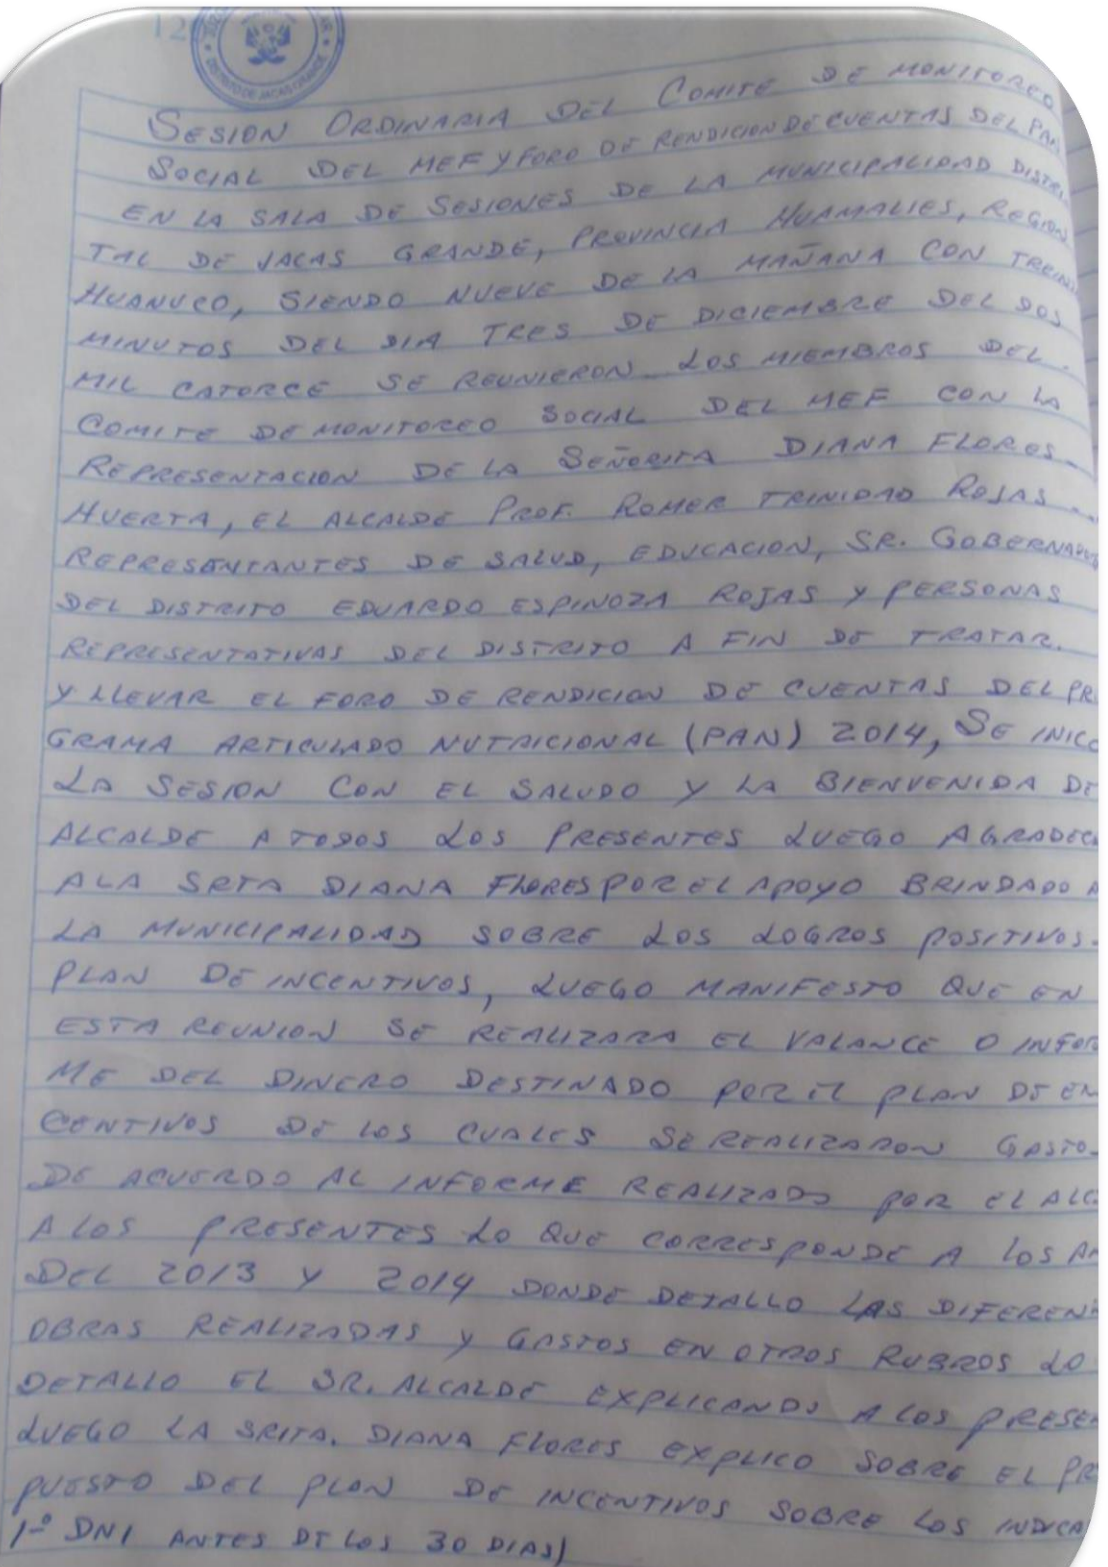 12
DISTRITO DE JACAS GRANDE
SESION ORDINARIA DEL COMITE DE MONITOREO
SOCIAL DEL MEF Y FORO DE RENDICION DE CUENTAS DEL PAN
EN LA SALA DE SESIONES DE LA MUNICIPALIDAD DISTRI
TAL DE JACAS GRANDE, PROVINCIA HUAMALIES, REGION
HUANUCO, SIENDO NUEVE DE LA MAÑANA CON TREINTA
MINUTOS DEL DIA TRES DE DICIEMBRE DEL DOS
MIL CATORCE SE REUNIERON LOS MIEMBROS DEL
COMITE DE MONITOREO SOCIAL DEL MEF CON LA
REPRESENTACION DE LA SEÑORITA DIANA FLORES
HUERTA, EL ALCALDE PROF. ROMER TRINIDAD ROJAS
REPRESENTANTES DE SALUD, EDUCACION, SR. GOBERNADOR
DEL DISTRITO EDUARDO ESPINOZA ROJAS Y PERSONAS
REPRESENTATIVAS DEL DISTRITO A FIN DE TRATAR.
Y LLEVAR EL FORO DE RENDICION DE CUENTAS DEL PR
GRAMA ARTICULADO NUTRICIONAL (PAN) 2014, SE INICO
LA SESION CON EL SALUDO Y LA BIENVENIDA DE
ALCALDE A TODOS LOS PRESENTES LUEGO AGRADECI
A LA SRTA DIANA FLORES POR EL APOYO BRINDADO A
LA MUNICIPALIDAD SOBRE LOS LOGROS POSITIVOS.
PLAN DE INCENTIVOS, LUEGO MANIFESTO QUE EN
ESTA REUNION SE REALIZARA EL VALANCE O INFOR
ME DEL DINERO DESTINADO POR EL PLAN DE EN
CENTIVOS DE LOS CUALES SE REALIZARON GASTO
DE ACUERDO AL INFORME REALIZADO POR EL ALC
A LOS PRESENTES LO QUE CORRESPONDE A LOS AÑ
DEL 2013 Y 2014 DONDE DETALLO LAS DIFEREN
OBRAS REALIZADAS Y GASTOS EN OTROS RUBROS LO
DETALLO EL SR. ALCALDE EXPLICANDO A LOS PRESEN
LUEGO LA SRITA. DIANA FLORES EXPLICO SOBRE EL PR
PUESTO DEL PLAN DE INCENTIVOS SOBRE LOS INDICA
1º DNI ANTES DE LOS 30 DIAS)